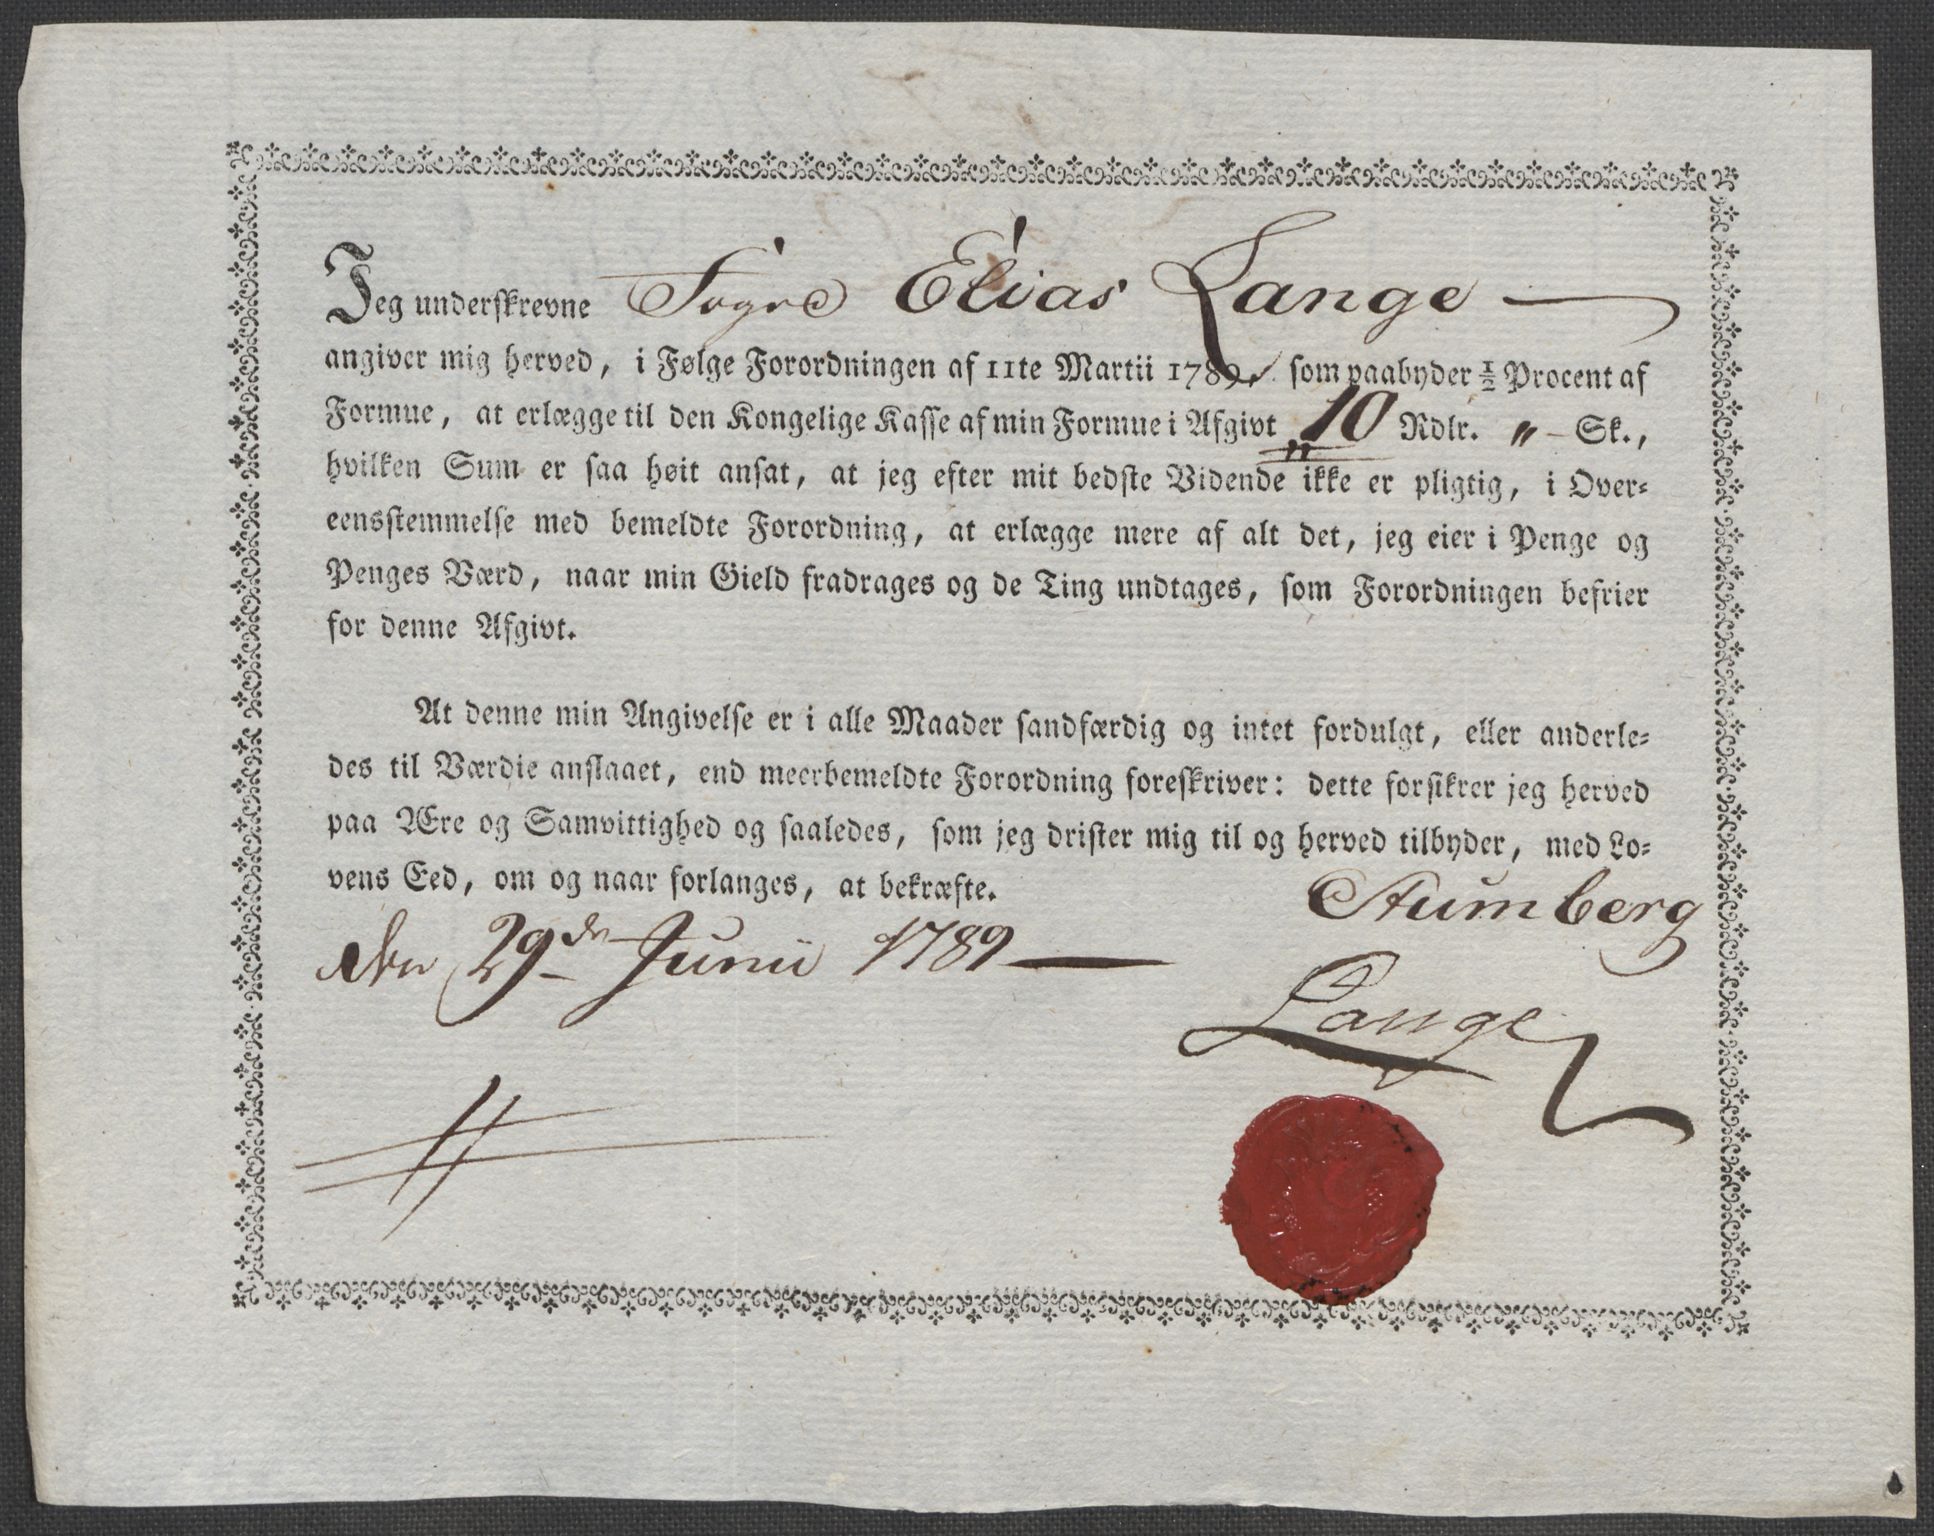 Jeg underskrevne Sogne Elias Lange
angiver mig herved, i Følge Forordningen af 11te Martii 1789, som paabyder ½ Procent af
Formue, at erlægge til den Kongelige Kasse af min Formue i Afgivt 10 Rdlr. „ Sk.,
hvilken Sum er saa høit ansat, at jeg efter mit bedste Vidende ikke er pligtig, i Over-
eensstemmelse med bemeldte Forordning, at erlægge mere af alt det, jeg eier i Penge og
Penges Værd, naar min Gield fradrages og de Ting undtages, som Forordningen befrier
for denne Afgivt.
At denne min Angivelse er i alle Maader sandfærdig og intet fordulgt, eller anderle-
des til Værdie anslaaet, end meerbemeldte Forordning foreskriver: dette forsikrer jeg herved
paa Ære og Samvittighed og saaledes, som jeg drister mig til og herved tilbyder, med Lo-
vens Eed, om og naar forlanges, at bekræfte.
Stumberg
den 29de Junii 1789
Lange